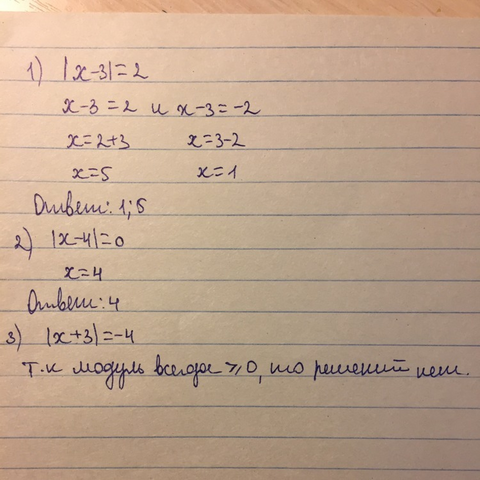 1) |x-3|=2
x-3=2 и x-3=-2
x=2+3 x=3-2
x=5 x=1
Ответ: 1; 5
2) |x-4|=0
x=4
Ответ: 4
3) |x+3|=-4
Т.к модуль всегда ⩾0, то решений нет.